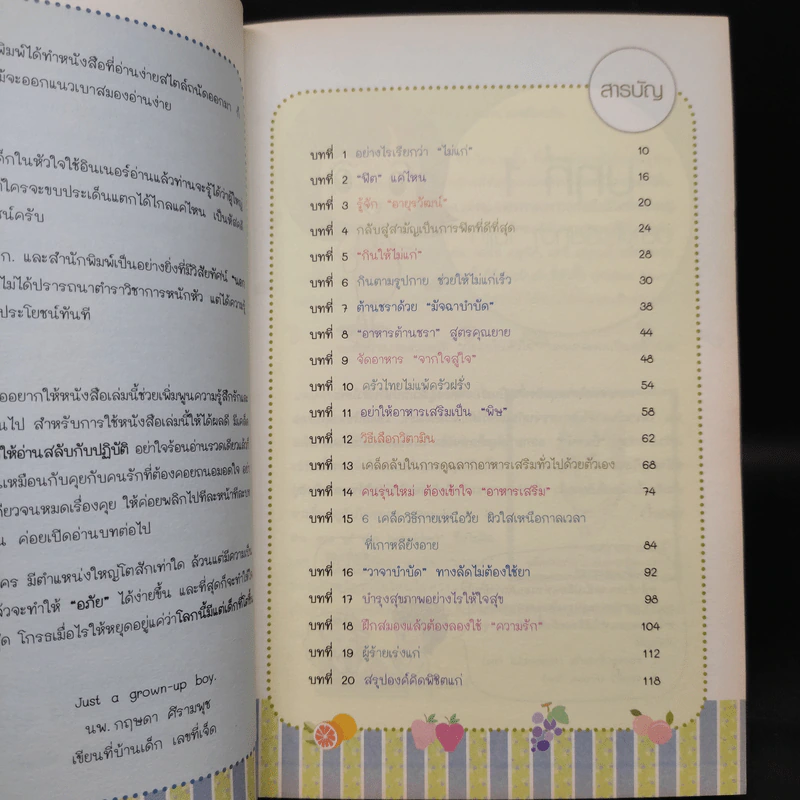 พิมพ์ได้ทำหนังสือที่อ่านง่ายสไตล์ถนัดออกมา
จะออกแนวเบาสมองอ่านง่าย
ด็กในหัวใจใช้อินเนอร์อ่านแล้วท่านจะรู้ได้ว่าผู้ใหญ่
ใครจะขบประเด็นแตกได้ไกลแค่ไหน เป็น
ชน์ครับ
ก. และสำนักพิมพ์เป็นอย่างยิ่งที่มีวิสัยทัศน์
ไม่ได้ปรารถนาตำราวิชาการหนักหัว แต่ได้ความรู้
ประโยชน์ทันที
ออยากให้หนังสือเล่มนี้ช่วยเพิ่มพูนความรู้สึกรักและ
นไป สำหรับการใช้หนังสือเล่มนี้ให้ได้ผลดี มีเคล็ด
ให้อ่านสลับกับปฏิบัติ อย่าใจร้อนอ่านรวดเดียว
เหมือนกับคุยกับคนรักที่ต้องคอยถนอมดอดใจ อย่า
ดียวจนหมดเรื่องคุย ให้ค่อยพลิกไปทีละหน้าทีละบท
น ค่อยเปิดอ่านบทต่อไป
คร มีตำแหน่งใหญ่โตสักเท่าใด ล้วนแต่มีความเป็น
ล้วจะทำให้ "อภัย" ได้ง่ายขึ้น และที่สุดก็จะทำได้
ด โกรธเมื่อไรให้หยุดอยู่แค่ว่าโลกนี้มีแต่เด็กที่โตขึ้น
Just a grown-up boy.
นพ. กฤษดา ศิรามพุช
เขียนที่บ้านเด็ก เลขที่เจ็ด
สารบัญ
บทที่ 1 อย่างไรเรียกว่า "ไม่แก่" 10
บทที่ 2 "ฟิต" แค่ไหน 16
บทที่ 3 รู้จัก "อายุรวัฒน์" 20
บทที่ 4 กลับสู่สามัญเป็นการฟิตที่ดีที่สุด 24
บทที่ 5 "กินให้ไม่แก่" 28
บทที่ 6 กินตามรูปกาย ช่วยให้ไม่แก่เร็ว 30
บทที่ 7 ต้านชราด้วย "มัจฉาบำบัด" 38
บทที่ 8 "อาหารต้านชรา" สูตรคุณยาย 44
บทที่ 9 จัดอาหาร "จากใจสู่ใจ" 48
บทที่ 10 ครัวไทยไม่แพ้ครัวฝรั่ง 54
บทที่ 11 อย่าให้อาหารเสริมเป็น "พิษ" 58
บทที่ 12 วิธีเลือกวิตามิน 62
บทที่ 13 เคล็ดลับในการดูฉลากอาหารเสริมทั่วไปด้วยตัวเอง 68
บทที่ 14 คนรุ่นใหม่ ต้องเข้าใจ "อาหารเสริม" 74
บทที่ 15 6 เคล็ดวิธีกายเหนือวัย ผิวใสเหนือกาลเวลา
ที่เกาหลียังอาย 84
บทที่ 16 "วาจาบำบัด" ทางลัดไม่ต้องใช้ยา 92
บทที่ 17 บำรุงสุขภาพอย่างไรให้ใจสุข 98
บทที่ 18 ฝึกสมองแล้วต้องลองใช้ "ความรัก" 104
บทที่ 19 ผู้ร้ายเร่งแก่ 112
บทที่ 20 สรุปองค์คิดพิชิตแก่ 118